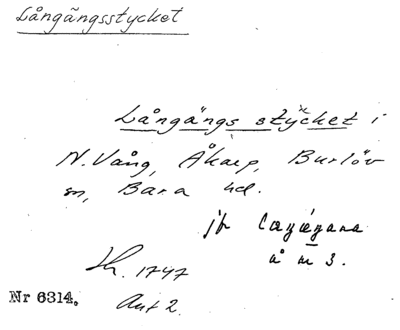 Långängsstycket
Långängs stycket i
N. Vång, Åkarp, Burlöv
sn, Bara hd.
jfr
å m 3.
Lh. 1747
Akt 2.
Nr 6314.